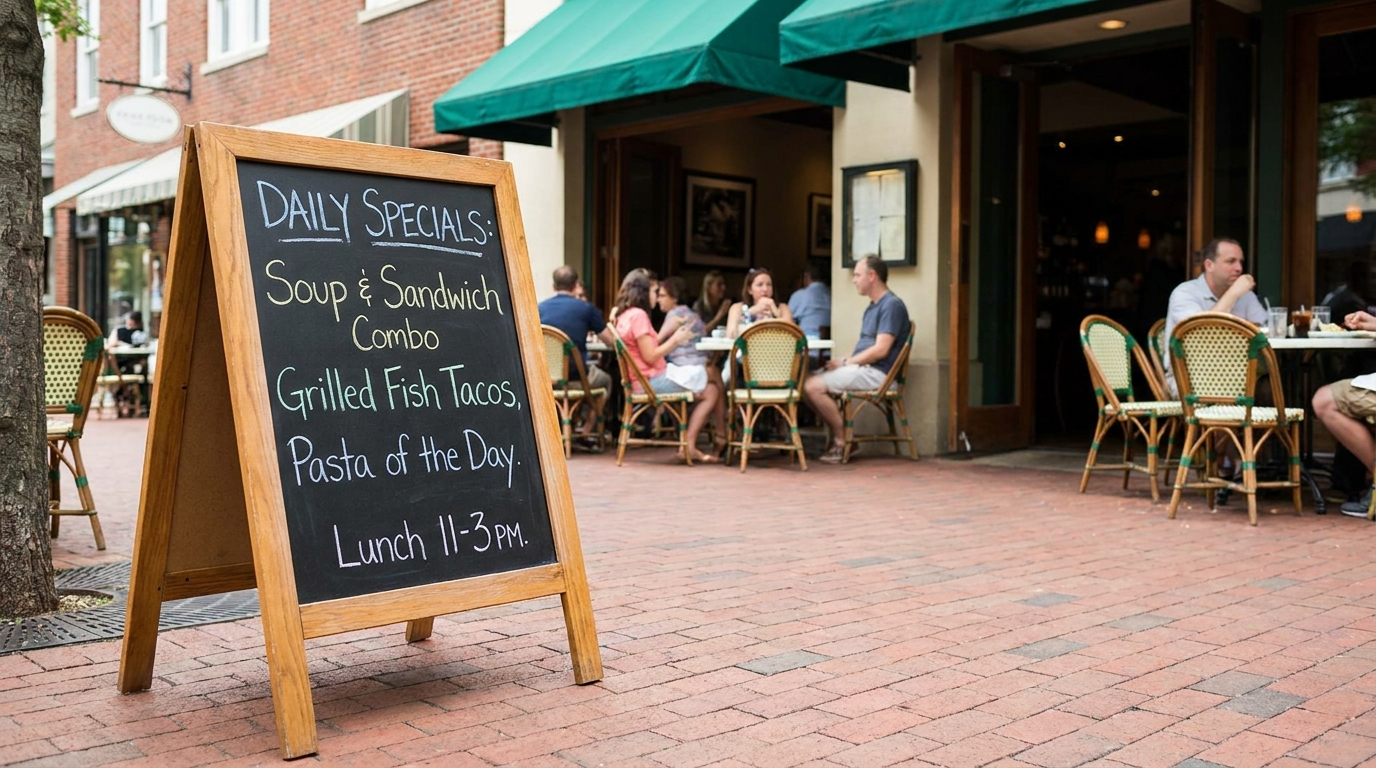 DAILY SPECIALS:
SOUP & SANDWICH
COMBO
Grilled Fish Tacos,
Pasta of the Day.
LUNCH 11-3 PM.